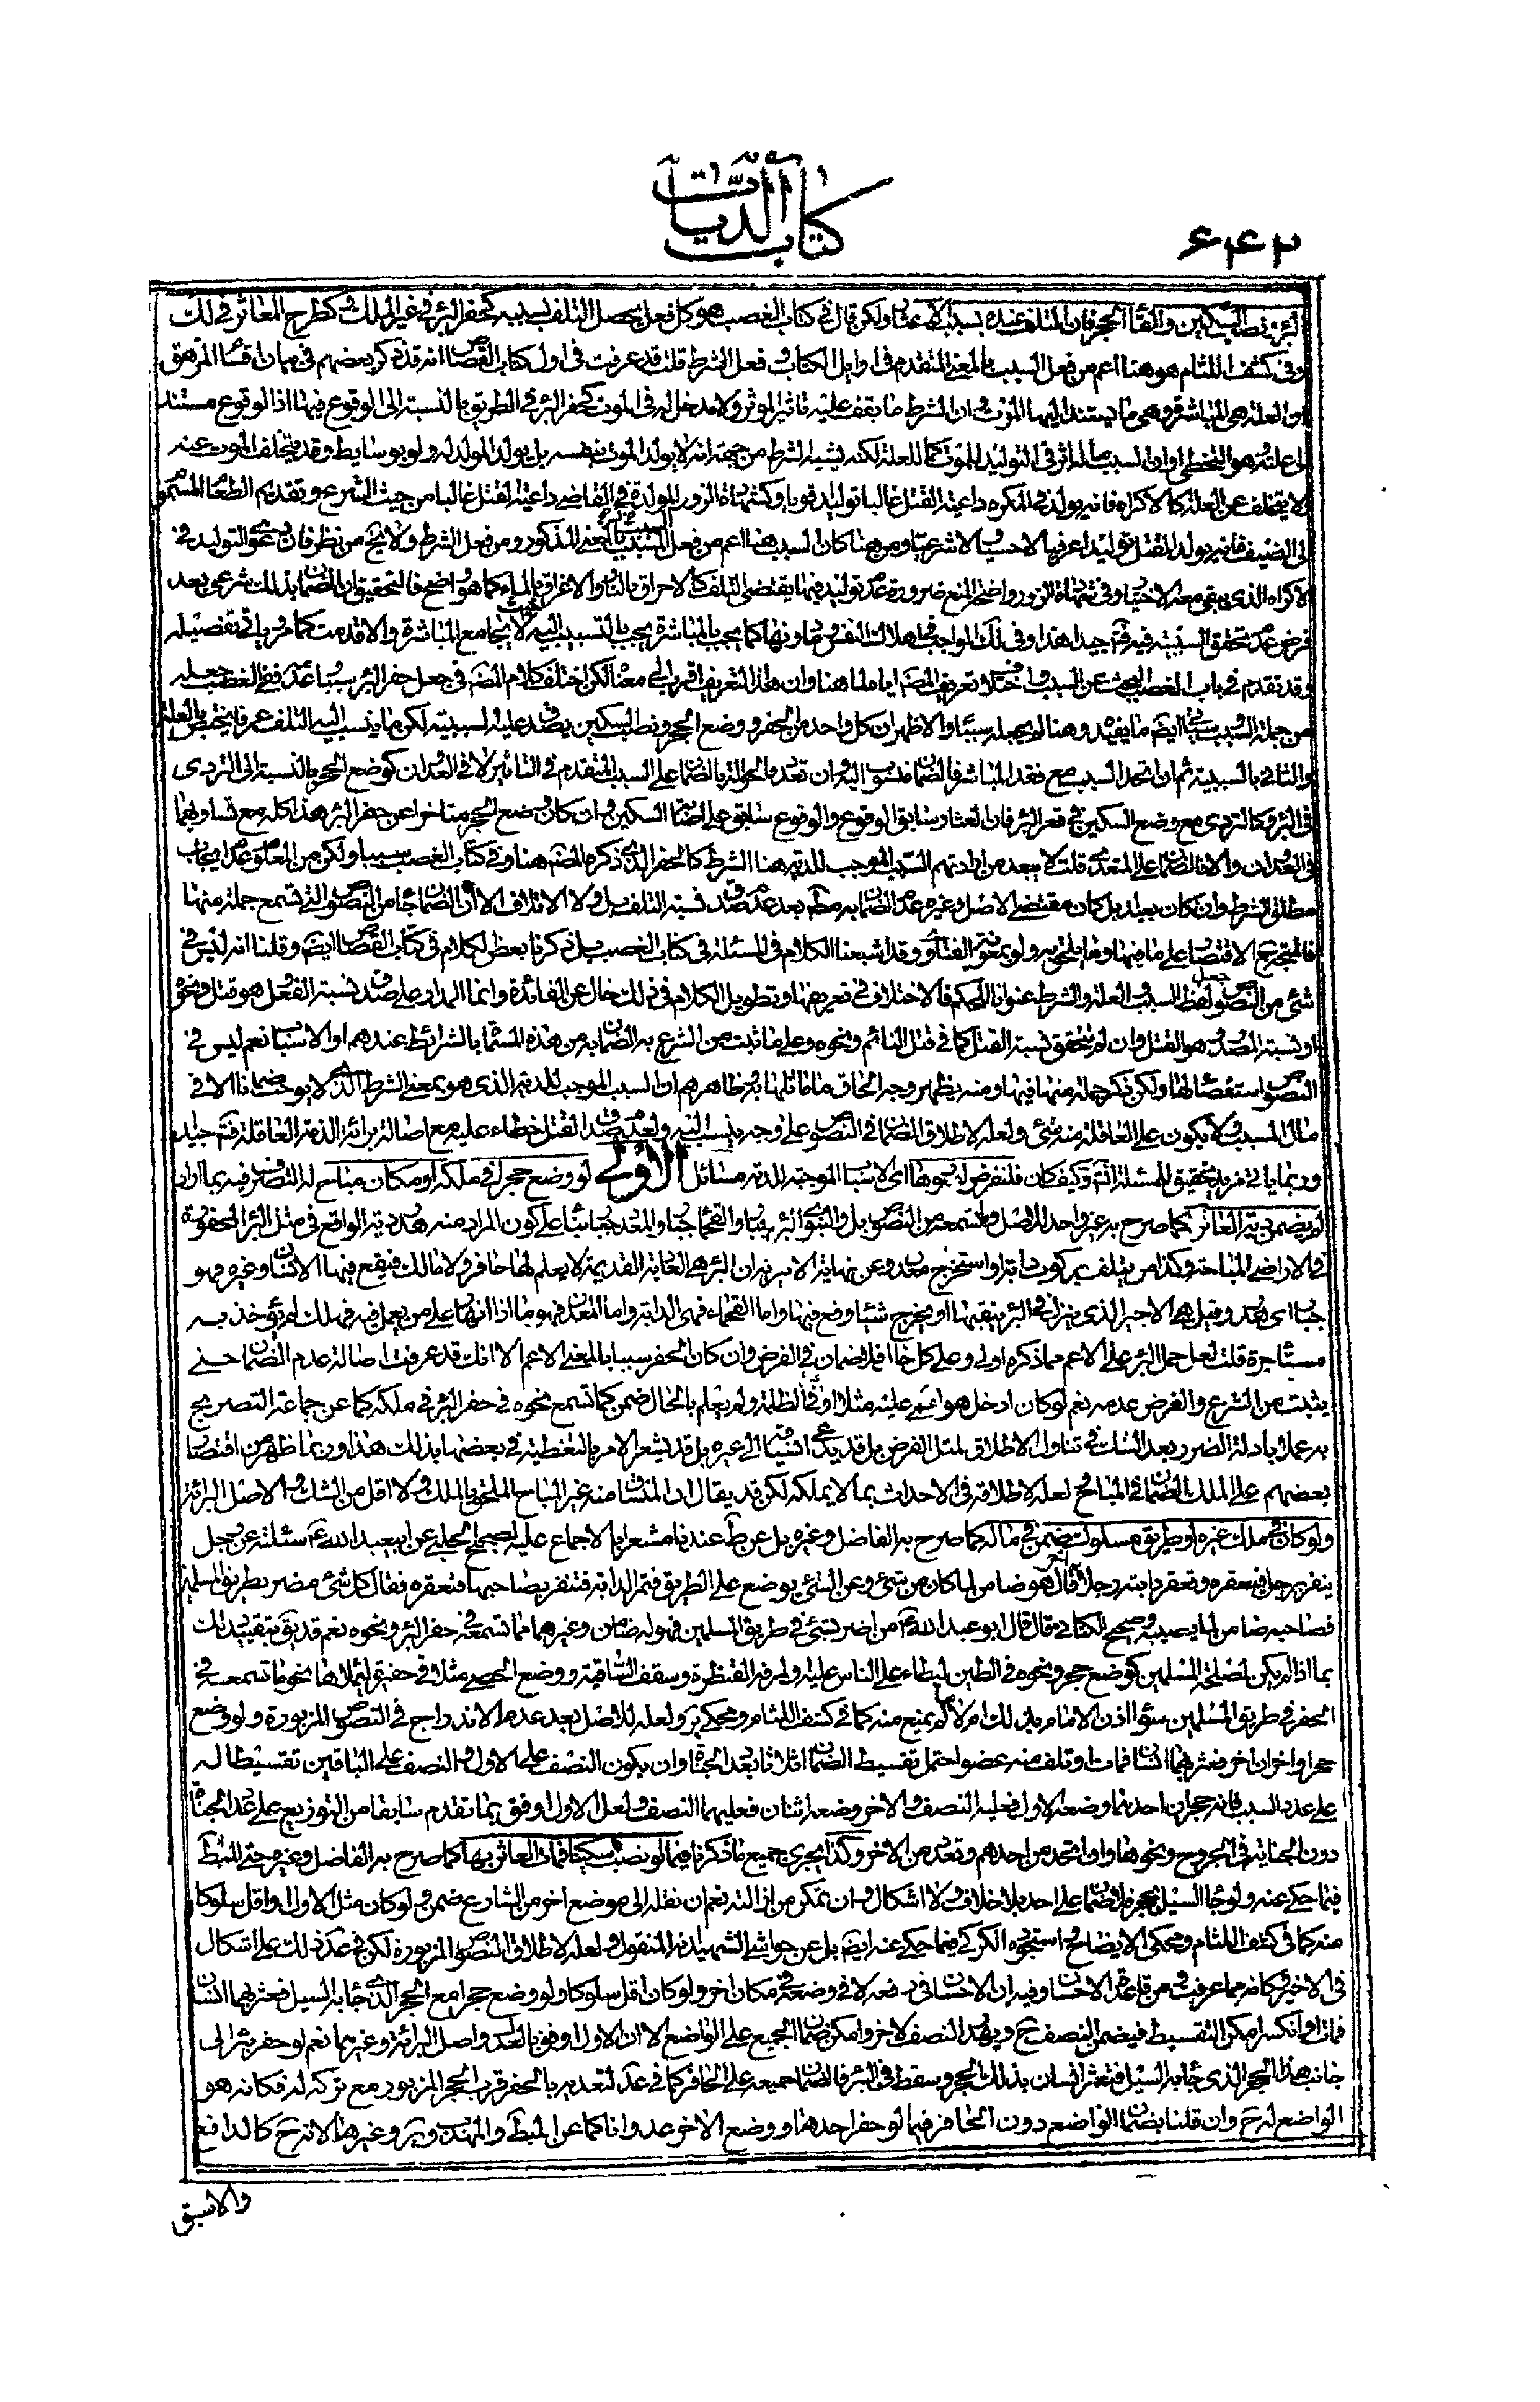 كتاب الديات
٦٤٢
البئر ونصب السكين والقاء الحجر فان التلف عنده بسبب العثار ولكن قال في كتاب الغصب هو كل فعل يحصل التلف بسببه كحفر البئر في غير الملك وكطرح المعاثر في
وفي كشف اللثام هو هنا اعم من فعل السبب بالمعنى المتقدم في اوايل الكتاب وفعل الشرط قلت قد عرفت في اول كتاب القصاص انه قد ذكر بعضهم في بيان اقسام المزهق
ان العلة هي المباشرة وهي ما يستند اليها الموت وان الشرط ما يقف عليه تاثير الموثر ولا مدخل له في الموت كحفر البئر في الطريق بالنسبة الى الوقوع فيها اذ الوقوع مستند
الى علته هو التخطي وان السبب ما له اثر في التوليد للموت كما للعلة لكنه يشبه الشرط من جهة انه لا يولد الموت بنفسه بل يولد المولد له ولو بوسايط وقد يتخلف الموت عنه
لا يتخلف عن العلة كالاكراه فانه يولد في المكره داعية القتل غالبا توليدا قويا وكشهادة الزور المولدة في القاضي داعية القتل غالبا من حيث الشرع وتقديم الطعام المسموم
الى الضيف فانه يولد القتل توليدا عرفيا لا حسيا ولا شرعيا ومن هنا كان السبب هنا اعم من فعل السبب بالمعنى المذكور ومن فعل الشرط ولا يخ من نظر فان دعوى التوليد في
الاكراه الذي يبقى معه الاختيار وفي شهادة الزور واضح المنع ضرورة عدم توليد فيها يقتضي التلف كالاحراق بالنار والاغراق بالماء كما هو واضح فالتحقيق ان الضمان بذلك شرعي بعد
فرض عدم تحقق السببية فيه فتم جيدا هذا وفي ذلك الواجب هلاك النفس وما دونها كما يجب بالمباشرة يجب بالتسبيب اليه لا يجامع المباشرة والا قدمت كما مر وياتي تفصيله
وقد تقدم في باب الغصب البحث عن السبب واختلاف تعريف المصنف اياه لما هنا وان هذا التعريف اقرب الى معناه لكن اختلف كلام المصنف في جعل حفر البئر سببا وعدمه ففي الغصب جعله
من جملة السبب وسياتي ايضا ما يفيده وهنا لم يجعله سببا والاظهر ان كل واحد من الحفر ووضع الحجر ونصب السكين يصدق عليه السببية لكن ما ينسب اليه التلف عرفا يختص بالعلة
والثاني بالسببية ثم ان اتحد السبب مع فقد المباشر فالضمان منسوب اليه وان تعدد بالحوالة بالضمان على السبب المتقدم في التاثير لا في العدوان كوضع الحجر بالنسبة الى التردي
في البئر وكالتردي مع وضع السكين في قعر البئر فان العثار سابق الوقوع والوقوع سابق على اصابة السكين وان كان وضع الحجر متاخرا عن حفر البئر هذا كله مع تساويهما
في العدوان والا فالضمان على المتعدي قلت لا يبعد من ارادتهم السبب الموجب للدية هنا الشرط كالحفر الذي ذكره المصنف هنا وفي كتاب الغصب سببا ولكن من المعلوم عدم ايجاب
مطلق الشرط وان كان بعيدا بل كان مقتضى الاصل وغيره عدم الضمان به مطلقا بعد عدم صدق نسبة التلف بل ولا الاتلاف الا ان الضمان جاء من النصوص التي تسمع جملة منها
فالمتجه الاقتصار على ما فيها وما يلحق به ولو بمعونة الفتاوى وقد اشبعنا الكلام في المسئلة في كتاب الغصب بل ذكرنا بعض الكلام في كتاب القصاص ايضا وقلنا انه ليس في
شئ من النصوص جعل لفظ السبب والعلة والشرط عنوانا للحكم فالاختلاف في تعريفها وتطويل الكلام في ذلك خال عن الفائدة وانما المدار على صدق نسبة الفعل هو قتل ونحوه
او نسبة المصدر هو القتل وان لم يتحقق نسبة القتل كما في قتل النائم ونحوه وعلى ما ثبت من الشرع به الضمان به من هذه المسماة بالشرائط عندهم او الاسباب نعم ليس في
النصوص استقصاء لها ولكن ذكر جملة منها فيها ومنه يظهر وجه الحاق ما ماثلها به ظاهرهم ان السبب الموجب للدية الذي هو بمعنى الشرط الذي لا يوجب ضمانا الا في
مال المسبب ولا يكون على العاقلة منه شئ ولعله لاطلاق الضمان في النصوص على وجه ينسب اليه ولعدم صدق القتل خطاء عليه مع اصالة برائة الذمة العاقلة فتم جيدا
وربما ياتي مزيد تحقيق للمسئلة انشاء الله وكيف كان فلنفرض لصورها اى الاسباب الموجبة للدية مسائل الاولى لو وضع حجرا في ملكه او مكان مباح له التصرف فيه بما اراد
لم يضمن دية العاثر كما صرح به غير واحد للاصل ولما تسمعه من النصوص بل والنبوي البئر جبار والعجماء جبار والمعدن جبار بناء على كون المراد منه هدر دية الواقع في مثل البئر المحفورة
في الاراضي المباحة وكذا من يتلف بركوب دابة او استخراج معدن وعن نهاية الاثيرية ان البئر هي العادية القديمة لا يعلم لها حافر ولا مالك فيقع فيها الانسان وغيره فهو
جبار اى هدر وقيل هو الاجير الذي ينزل في البئر ينقيها او يخرج شيئا وقع فيها واما العجماء فهي الدابة واما المعدن فهو ما اذا انهار على من يعمل فيه فهلك لم يؤخذ به
مستأجره قلت لعل حمل البئر على الاعم مما ذكره اولى وعلى كل حال فلا ضمان في الفرض وان كان الحفر سببا بالمعنى الاعم الا انك قد عرفت اصالة عدم الضمان حتى
يثبت من الشرع والفرض عدمه نعم لو كان ادخل هو اعمى عليه مثلا او في الظلمة ولم يعلم بالحال ضمن كما تسمع نحوه في حفر البئر في ملكه كما عن جماعة التصريح
به عملا بادلة الضرر بعد الشك في تناول الاطلاق لمثل الفرض بل قد يدعى انسياقه الى غيره بل قد يشعر الامر بالتغطية في بعضها بذلك هذا وربما ظهر من اقتصار
بعضهم على الملك الضمان في المباح لعله لاطلاقه في الاحداث بما لا يملكه لكن قد يقال ان المنساق منه غير المباح الملحق بالملك ولا اقل من الشك والاصل البرائة
ولو كان في ملك غيره او طريق مسلوك ضمن في ماله كما صرح به الفاضل وغيره بل عن ظ عندنا مشعرا بالاجماع عليه لصحيح الحلبي عن ابي عبد الله ع سئلته عن رجل
ينفر برجل فيعقره وتعقر دابته رجلا آخر قال هو ضامن لما كان من شئ وعن الشئ يوضع على الطريق فتمر الدابة فتنفر بصاحبها فتعقره فقال كل شئ مضر بطريق المسلمين
فصاحبه ضامن لما يصيبه وصحيح الكناني قال قال ابو عبد الله ع من اضر بشئ في طريق المسلمين فهو له ضامن وغيرهما مما تسمعه في حفر البئر ونحوه نعم قد يتجه تقييد ذلك
بما اذا لم يكن لمصلحة المسلمين كوضع حجر ونحوه في الطين ليطاء على الناس عليه ولمرفه القنطرة وسقف الساقية ووضع الحصى مثلا في حفيرة ليملاها نحو ما تسمعه في
الحفر في طريق المسلمين سواء اذن الامام بذلك ام لا ما لم يمنع منه كما في كشف اللثام ومحكي ير ولعله للاصل بعد عدم الاندراج في النصوص المزبورة ولو وضع
حجرا واخران اخر فعثر بهما انسان فمات او تلف منه عضو احتمل تقسيط الضمان اثلاثا بعدد الجناة وان يكون النصف على الاول والنصف على الباقين تقسيطا له
على عدد السبب فانه حجران احدهما وضعه الاول فعليه النصف والاخر وضعه اثنان فعليهما النصف ولعل الاول اوفق بما تقدم سابقا من التوزيع على عدد الجناة
دون الجناية في الجروح ونحوها وان اتحد من احدهم وتعدد من الاخر وكذا يجري جميع ما ذكرنا فيما لو نصب سكينا فمات العاثر بها كما صرح به الفاضل وغيره حتى الشيخ
فيما حكي عنه ولو جاء السيل بحجر فلا ضمان على احد بلا خلاف ولا اشكال وان تمكن من ازالته نعم ان نقله الى موضع اخر من الشارع ضمن ولو كان مثل الاول او اقل سلوكا
منه كما في كشف اللثام ومحكي الايضاح واستجوده الكركي فيما حكي عنه ايضا بل عن حواشي الشهيد انه المنقول ولعله لاطلاق النصوص المزبورة لكن في عد ذلك على اشكال
في الاخير وكانه مما عرفت من قاعدة الاحسان وفيه ان الاحسان في رفعه لا في وضعه في مكان اخر ولو كان اقل سلوكا ولو وضع حجرا مع الحجر الذي جاء به السيل فعثر بهما انسان
فمات او انكسر امكن التقسيط فيضمن النصف ح ويهدر النصف الاخر وامكن ضمان الجميع على الواضع الا ان الاول اوفق بالعدل واصل البرائة وغيرهما نعم لو حفر بئرا الى
جانب هذا الحجر الذي جاء به السيل فتعثر انسان بذلك الحجر وسقط في البئر فالضمان جميعه على الحافر كما في عد لتعديه بالحفر قرب الحجر المزبور مع تركه له فكانه هو
الواضع له ح وان قلنا بضمان الواضع دون الحافر فيما لو حفر احدهما ووضع الاخر عدوانا كما عن المبسوط والمهذب وير وغيرها لانه ح كالدافع
والاسبق